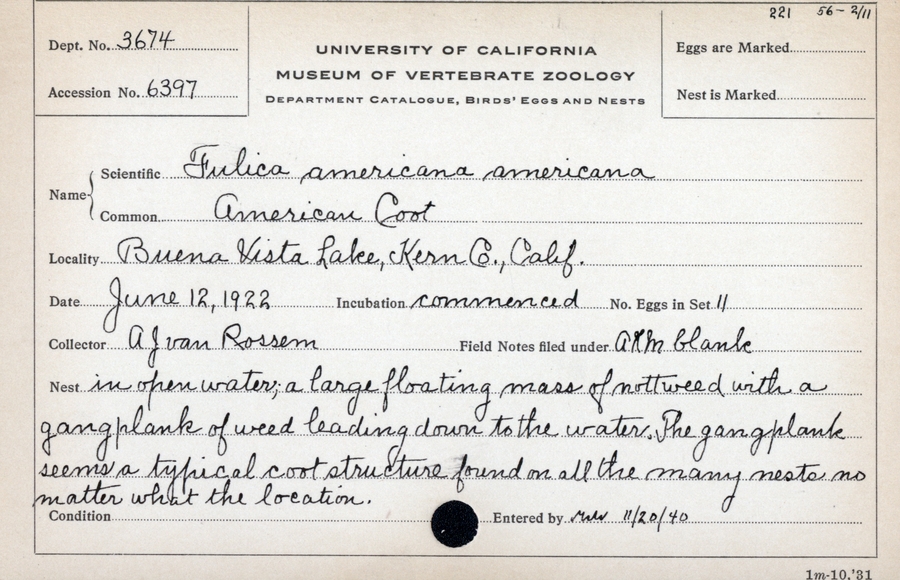 221 56-2/11
Dept. No. 3674
Accession No. 6397
UNIVERSITY OF CALIFORNIA
MUSEUM OF VERTEBRATE ZOOLOGY
DEPARTMENT CATALOGUE, BIRDS' EGGS AND NESTS
Eggs are Marked
Nest is Marked
Name
Scientific Fulica americana americana
Common American Coot
Locality Buena Vista Lake, Kern Co., Calif.
Date June 12, 1922 Incubation commenced No. Eggs in Set 11
Collector AJ van Rossem Field Notes filed under blank
Nest in open water; a large floating mass of nottweed with a
gangplank of weed leading down to the water. The gangplank
seems a typical coot structure found on all the many nests no
matter what the location.
Condition Entered by 11/20/40
1m-10,'31